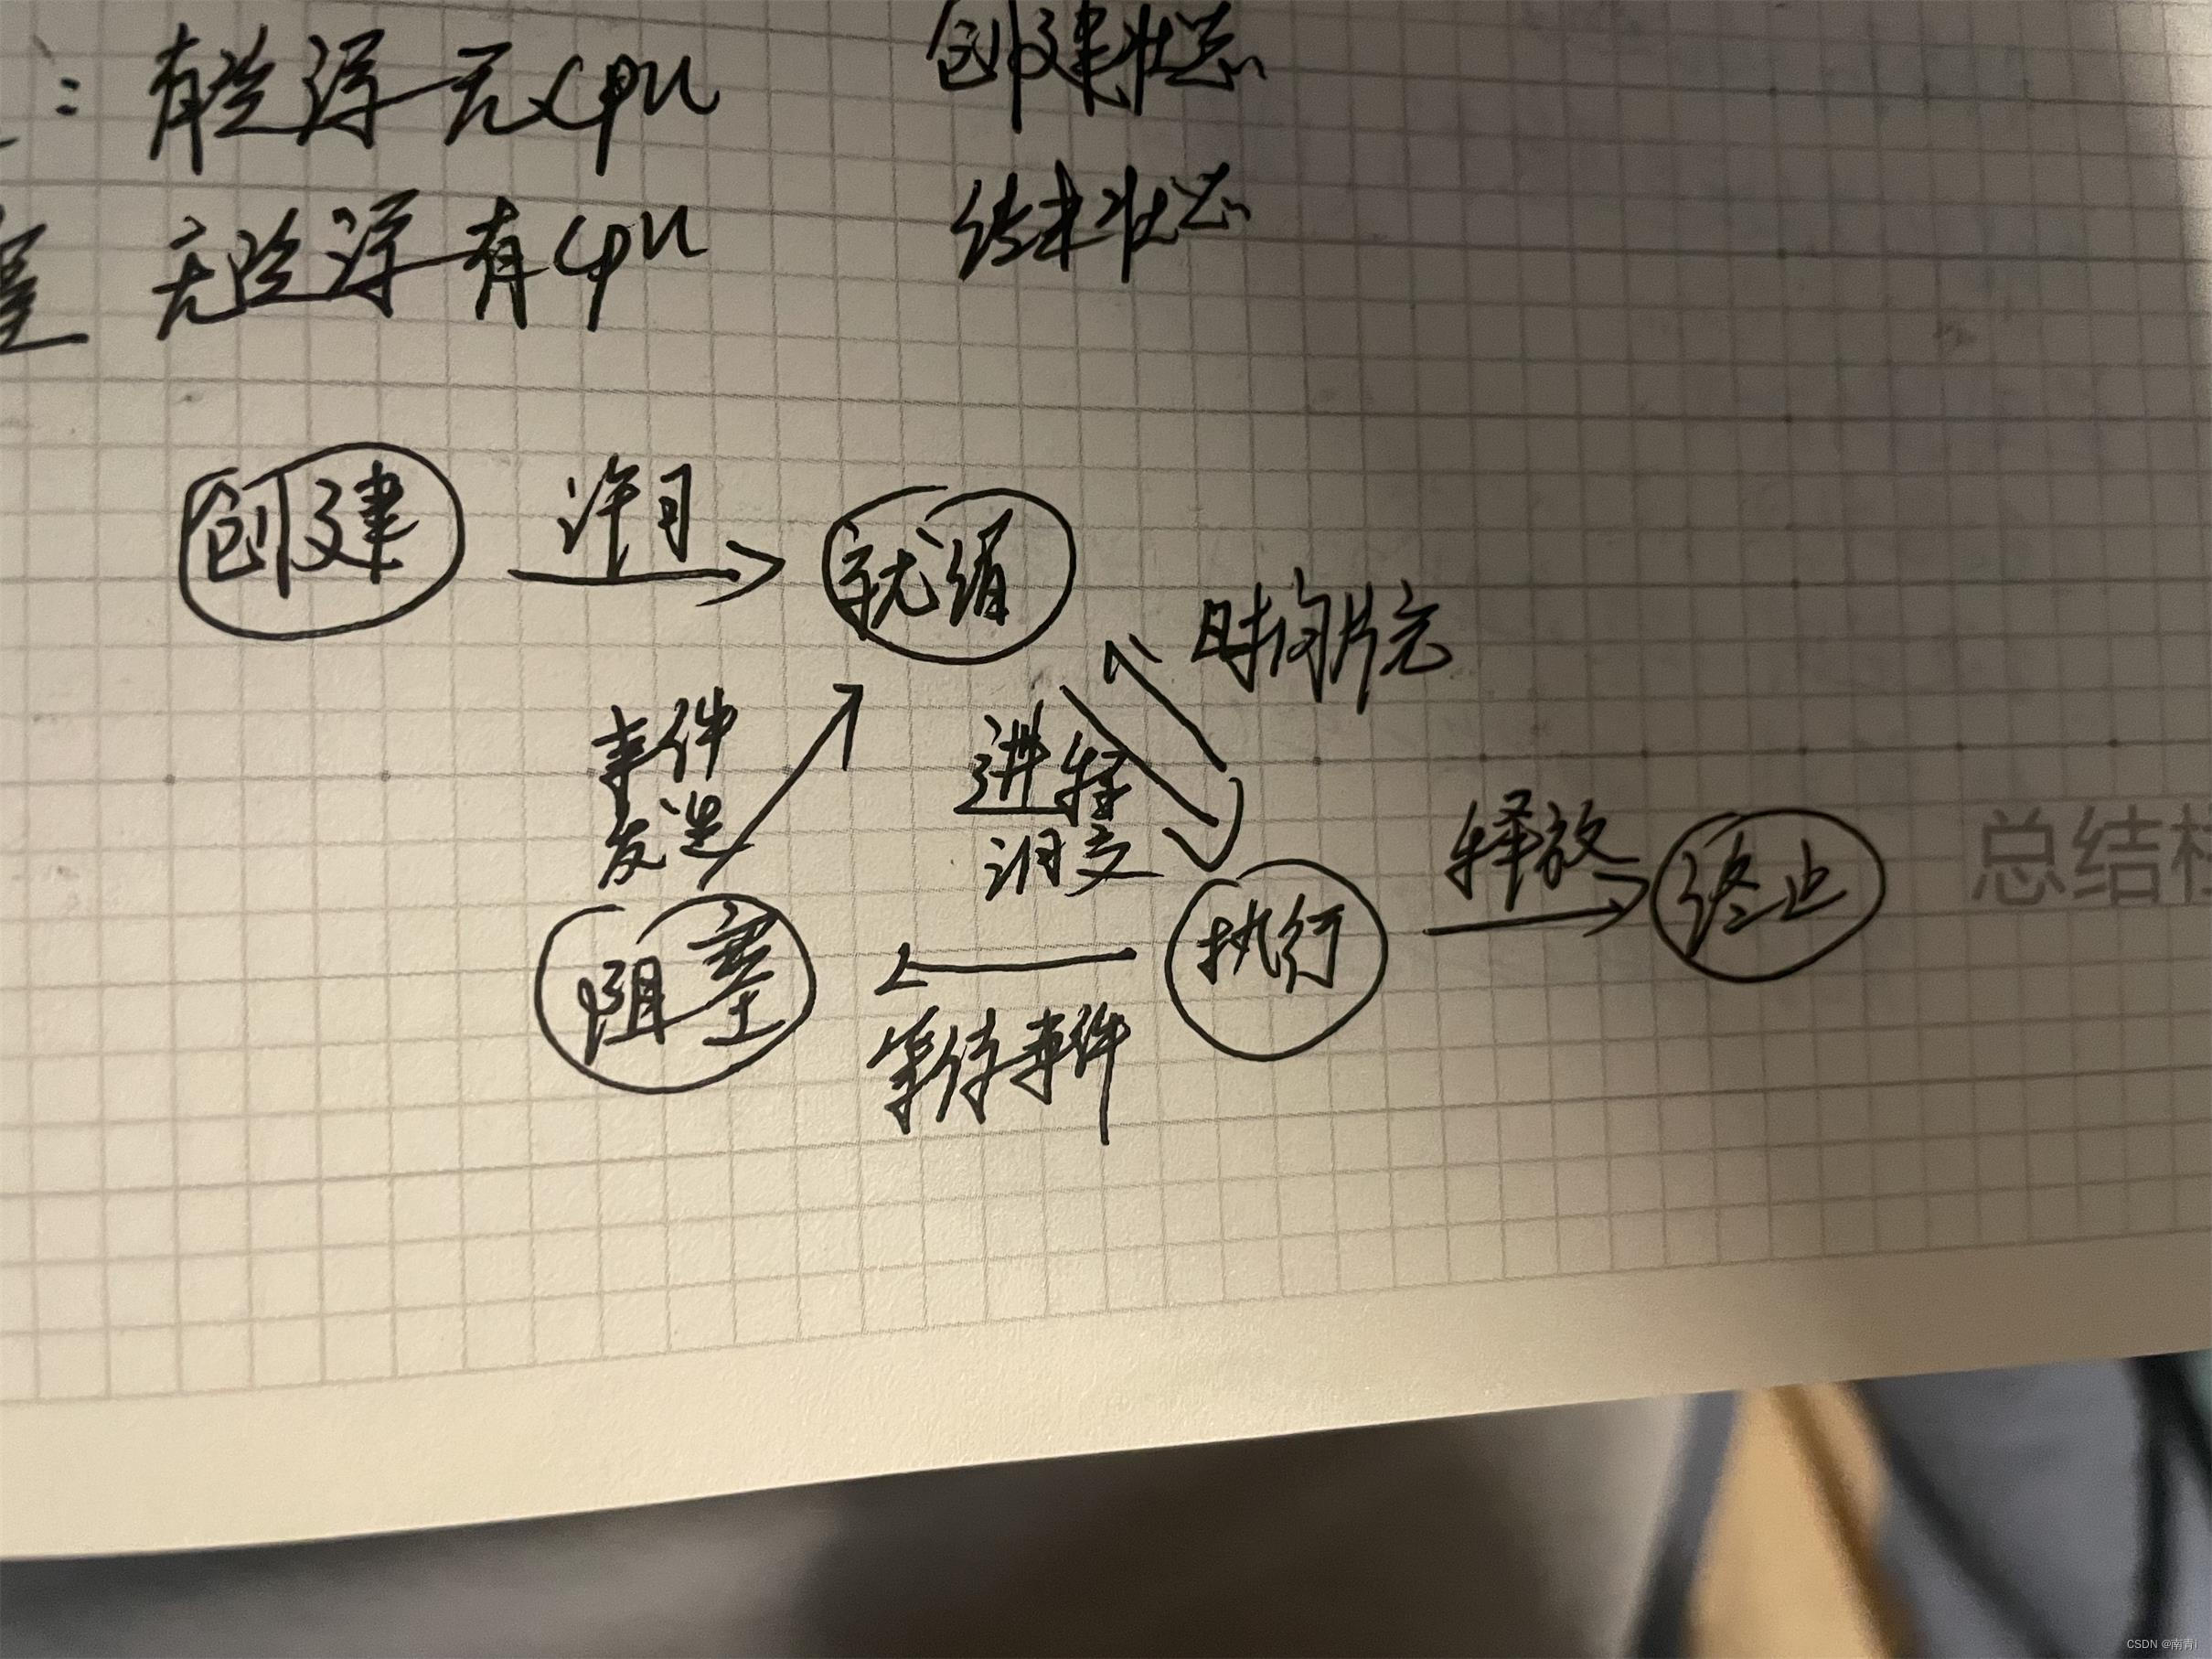 ：有资源无CPU
无资源有CPU
创建状态
结束状态
创建
许可
就绪
时间片完
事件
发生
进程
调度
释放
终止
总结
阻塞
执行
等待事件
CSDN @南青i